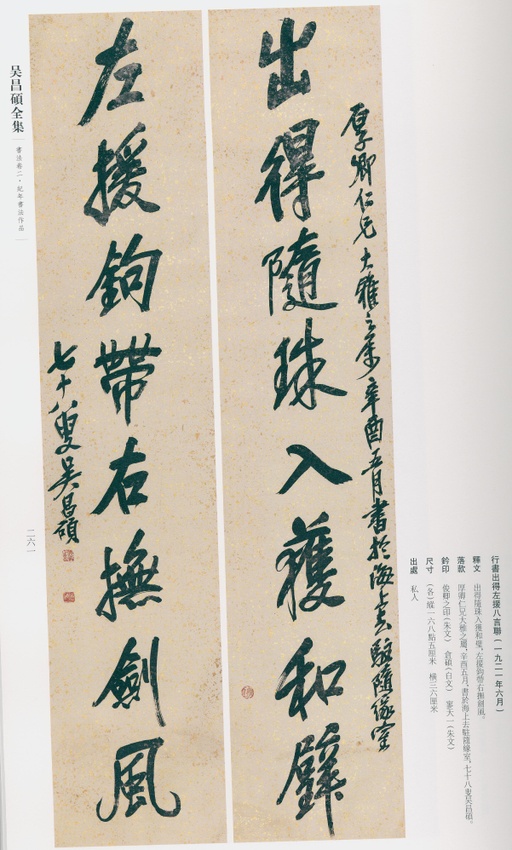 厚卿仁兄大雅之屬辛酉五月書於海上去駐隨緣室
出得隨珠入獲和璧
左援鉤帶右撫劍風
七十八叟吳昌碩
行書出得左援八言聯（一九二一年六月）
釋文 出得隨珠入獲和璧，左援鉤帶右撫劍風。
落款 厚卿仁兄大雅之屬，辛酉五月，書於海上去駐隨緣室，七十八叟吳昌碩。
鈐印 俊卿之印（朱文） 倉碩（白文） 寥天一（朱文）
尺寸 （各）縱一六八點五厘米 橫三六厘米
出處 私人
吴昌碩全集
書法卷二·紀年書法作品
二六一